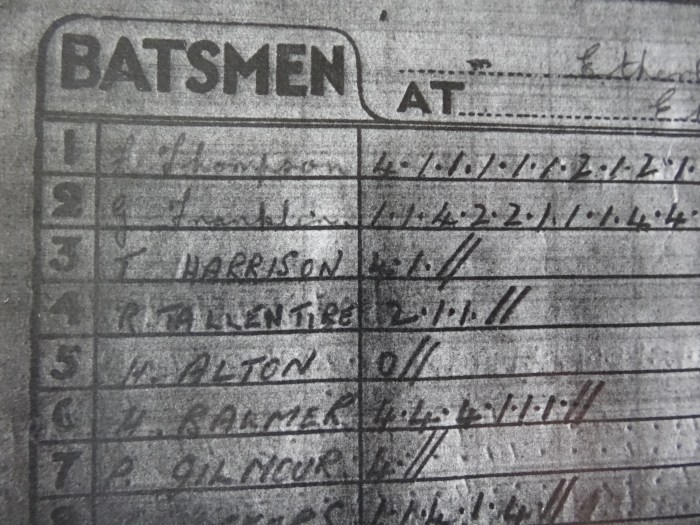 BATSMEN
AT
1 Thompson 4.1.1.1.1.1.2.1.2.1.
2 G Franklin 1.1.4.2.2.1.1.1.4.4
3 T HARRISON 4.1.//
4 R. TALLENTIRE 2.1.1.//
5 H. ALTON 0//
6 H. BALMER 4.4.4.1.1.1.//
7 P. GILMOUR 4.//
8 1.1.4.1.4//